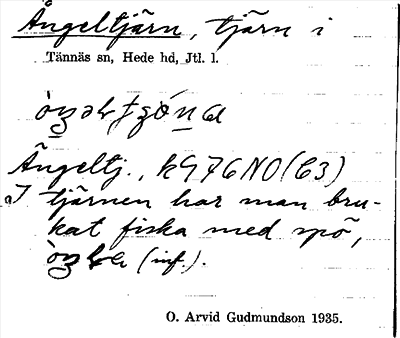 Ängeltjärn, tjärn i
Tännäs sn, Hede hd, Jtl. l.
Ängeltj., k976NO(C3)
I tjärnen har man bru-
kat fiska med spö,
(inf.).
O. Arvid Gudmundson 1935.